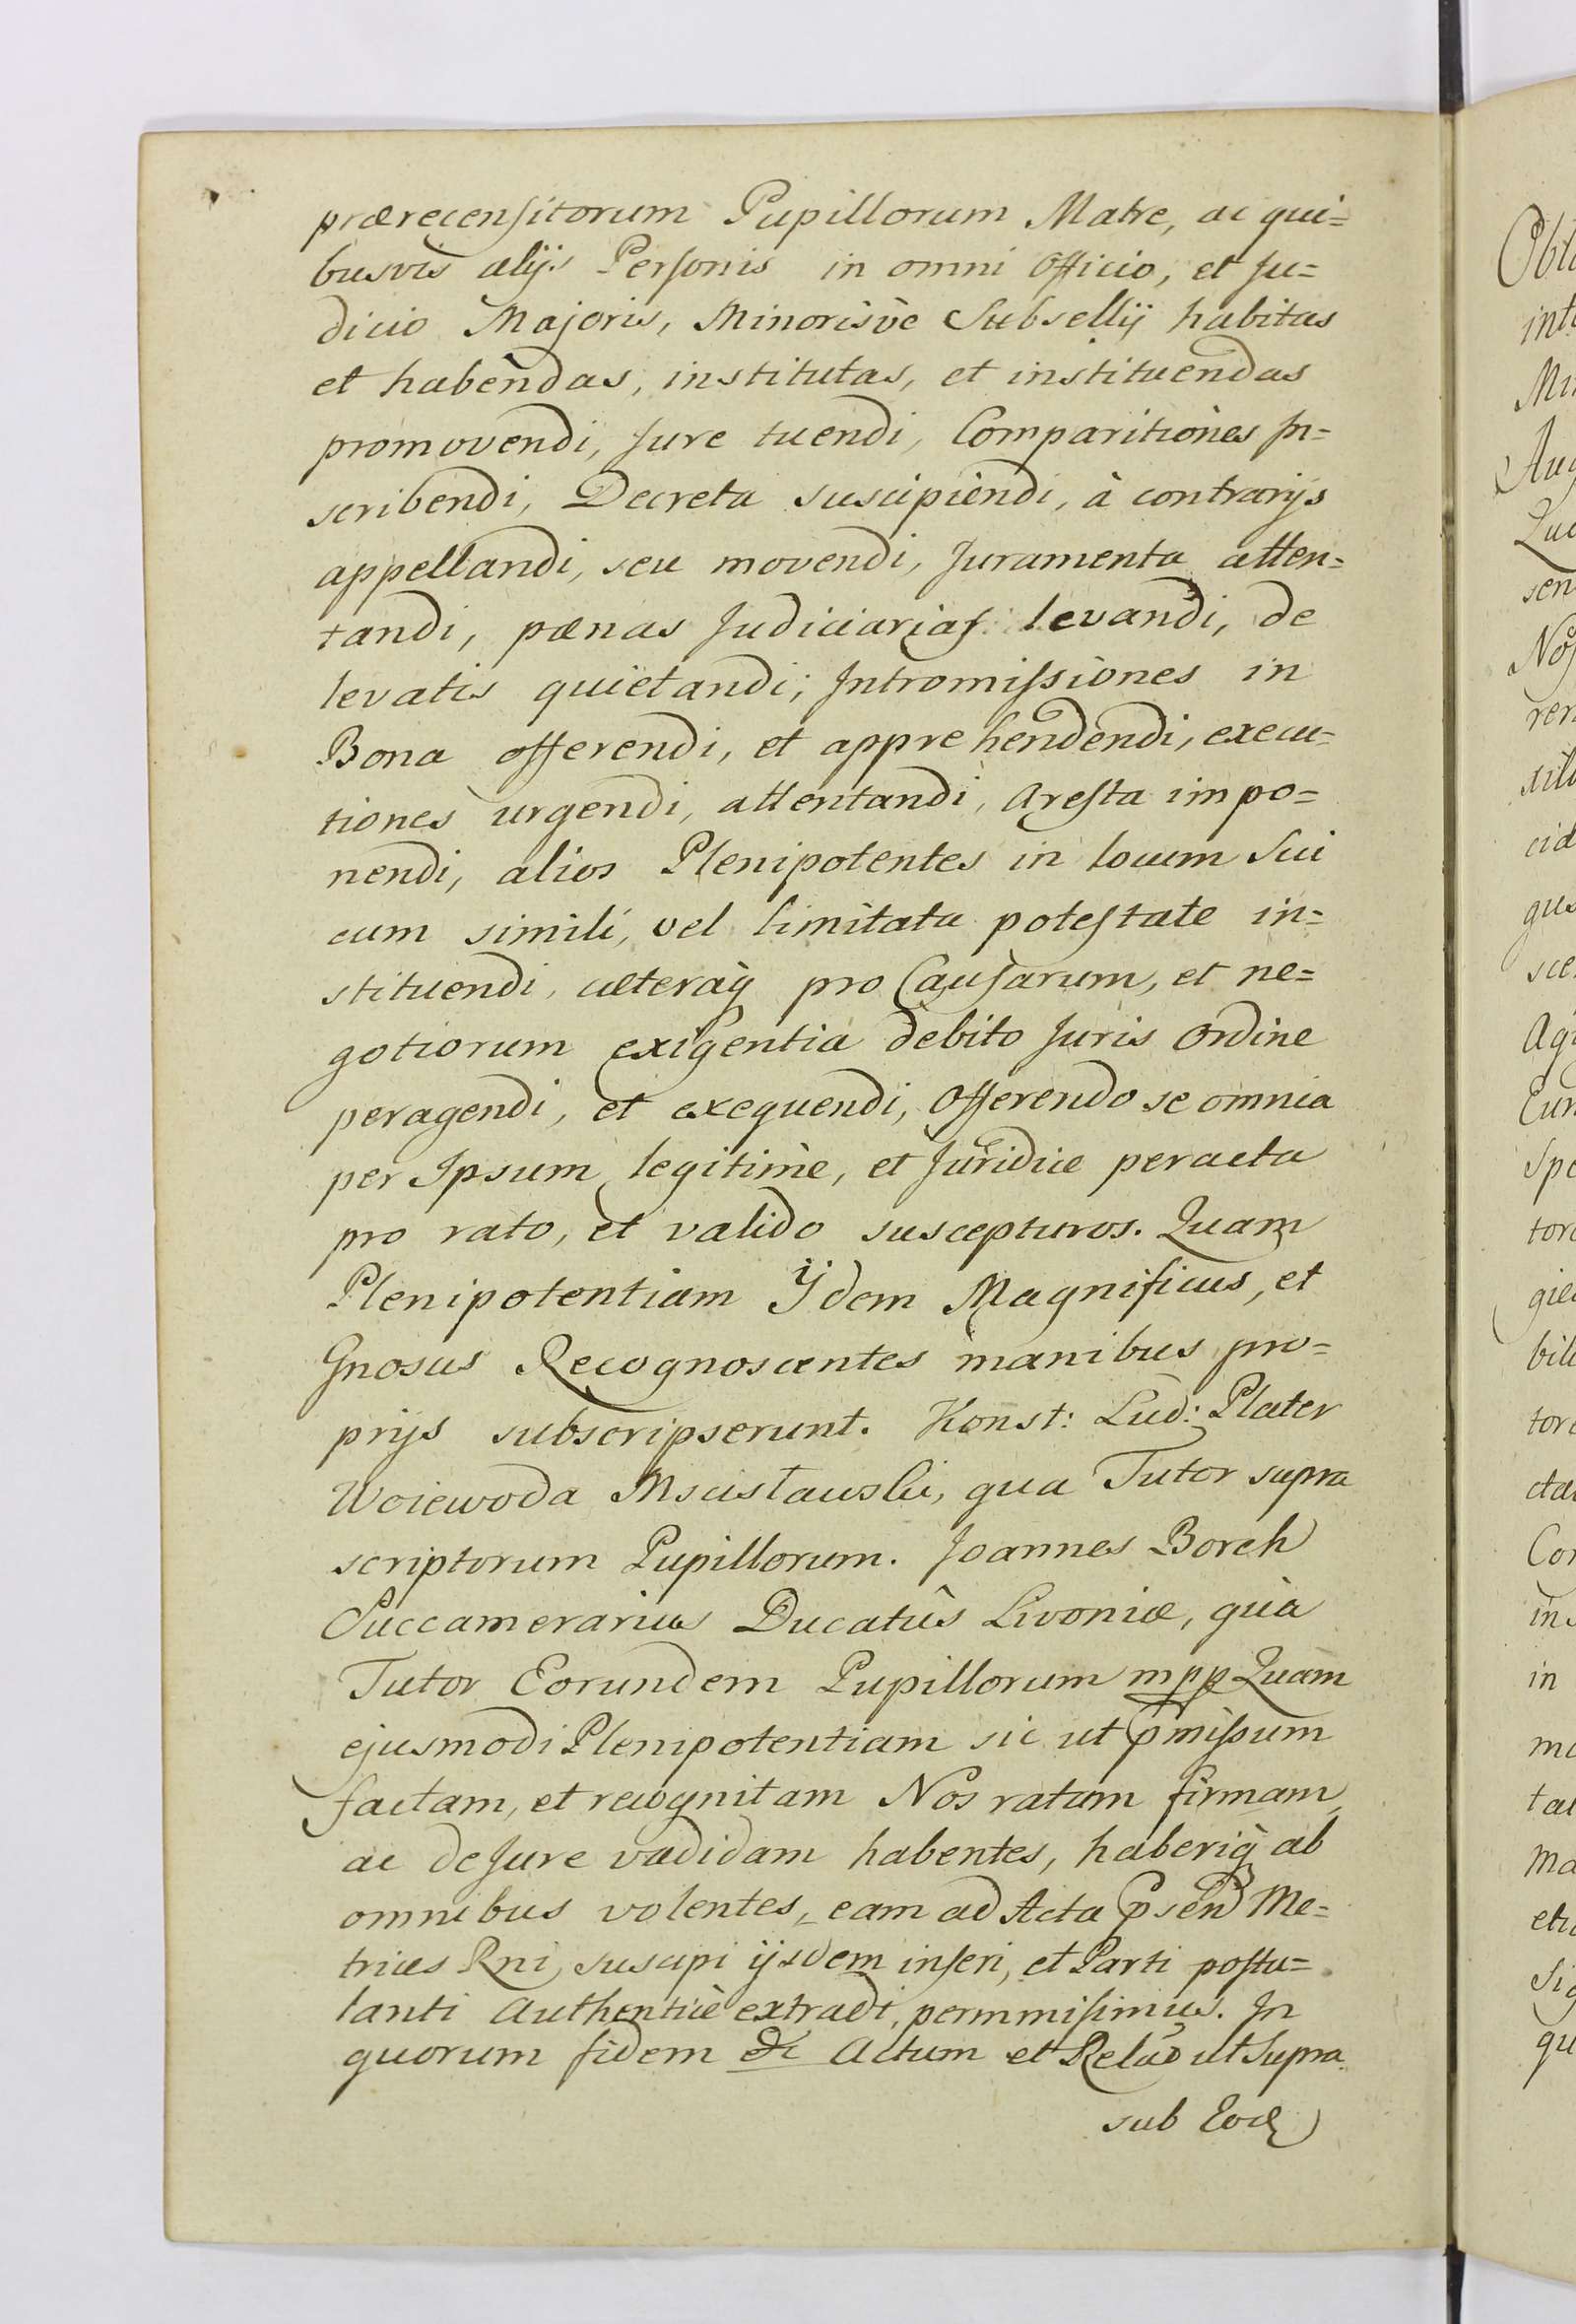 prærecensitorum Pupillorum Matre, ac qui=
busvis alijs Personis in omni Officio, et Ju=
dicio Majoris, Minorisvè Subsellij habitas
et habendas, institutas, et instituendas
promovendi, Jure tuendi, Comparitiones In=
scribendi, Decreta suscipiendi, à contrarijs
appellandi, seu movendi, Juramenta atten=
tandi, pænas Judiciarias levandi, de
levatis quietandi; Intromissiones in
Bona offerendi, et apprehendendi, execu=
tiones urgendi, attentandi, Aresta impo=
nendi, alios Plenipotentes in locum Sui
cum simili, vel limitata potestate in=
stituendi, cæteraq̀ pro Causarum, et ne=
gotiorum exigentia debito Juris Ordine
peragendi, et exequendi, Offerendo se omnia
per Ipsum legitimè, et Juridicè peracta
pro rato, et valido suscepturos. Quam
Plenipotentiam Ijdem Magnificus, et
Gnosus Recognoscentes manibus pro=
prijs subscripserunt. Konst: Lud: Plater
Woiewoda Mscisławski, qua Tutor supra
scriptorum Pupillorum. Joannes Borch
Succamerarius Ducatûs Livoniæ, quà
Tutor Eorundem Pupillorum mpp Quam
ejusmodi Plenipotentiam sic ut p̄missum
factam, et recognitam Nos ratam firmam,
ac de Jure vadidam habentes, haberiq̀ ab
omnibus volentes, eam ad Acta p̄send Me=
trices Rni, suscipi ijsdem inseri, et Parti postu=
lanti Authenticè extradi, permmisimus. In
quorum fidem &c Actum et Relao ut Supra.
sub Eod